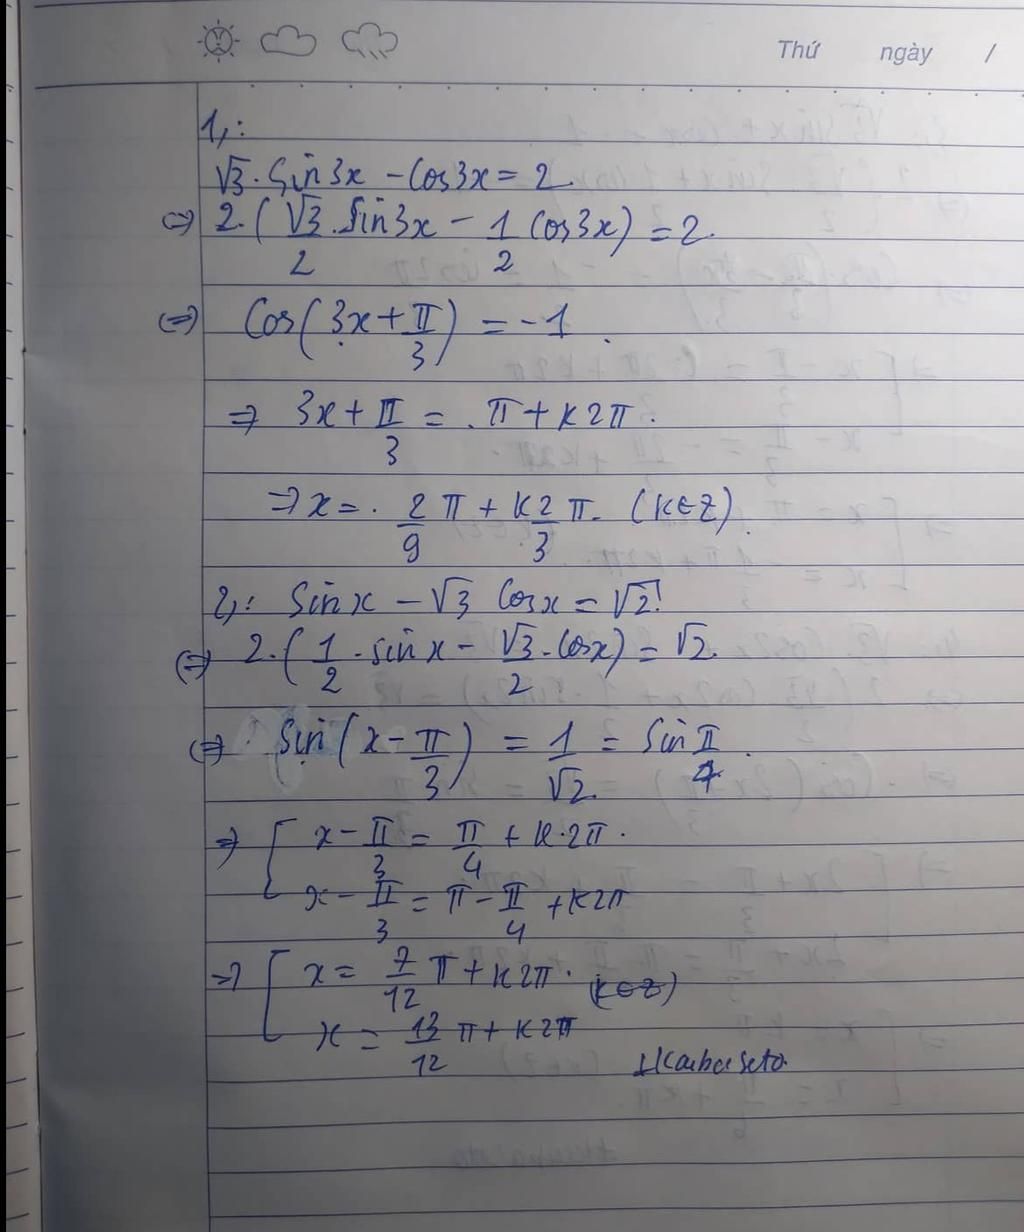 Thứ ngày /
1,:
√3 . Sin3x - Cos3x = 2
⇔ 2.(√3/2 . Sin3x - 1/2 Cos3x) = 2.
⇔ Cos(3x + π/3) = -1.
⇒ 3x + π/3 = π + k2π.
⇒ x = 2/9 π + k2/3 π. (k∈Z).
2,: Sinx - √3 Cosx = √2!
⇔ 2.(1/2 . sinx - √3/2 . Cosx) = √2.
⇔ Sin(x - π/3) = 1/√2. = Sin π/4.
⇒ [ x - π/3 = π/4 + k.2π.
x - π/3 = π - π/4 + k2π
⇒ [ x = 7/12 π + k2π. (k∈Z)
x = 13/12 π + k2π